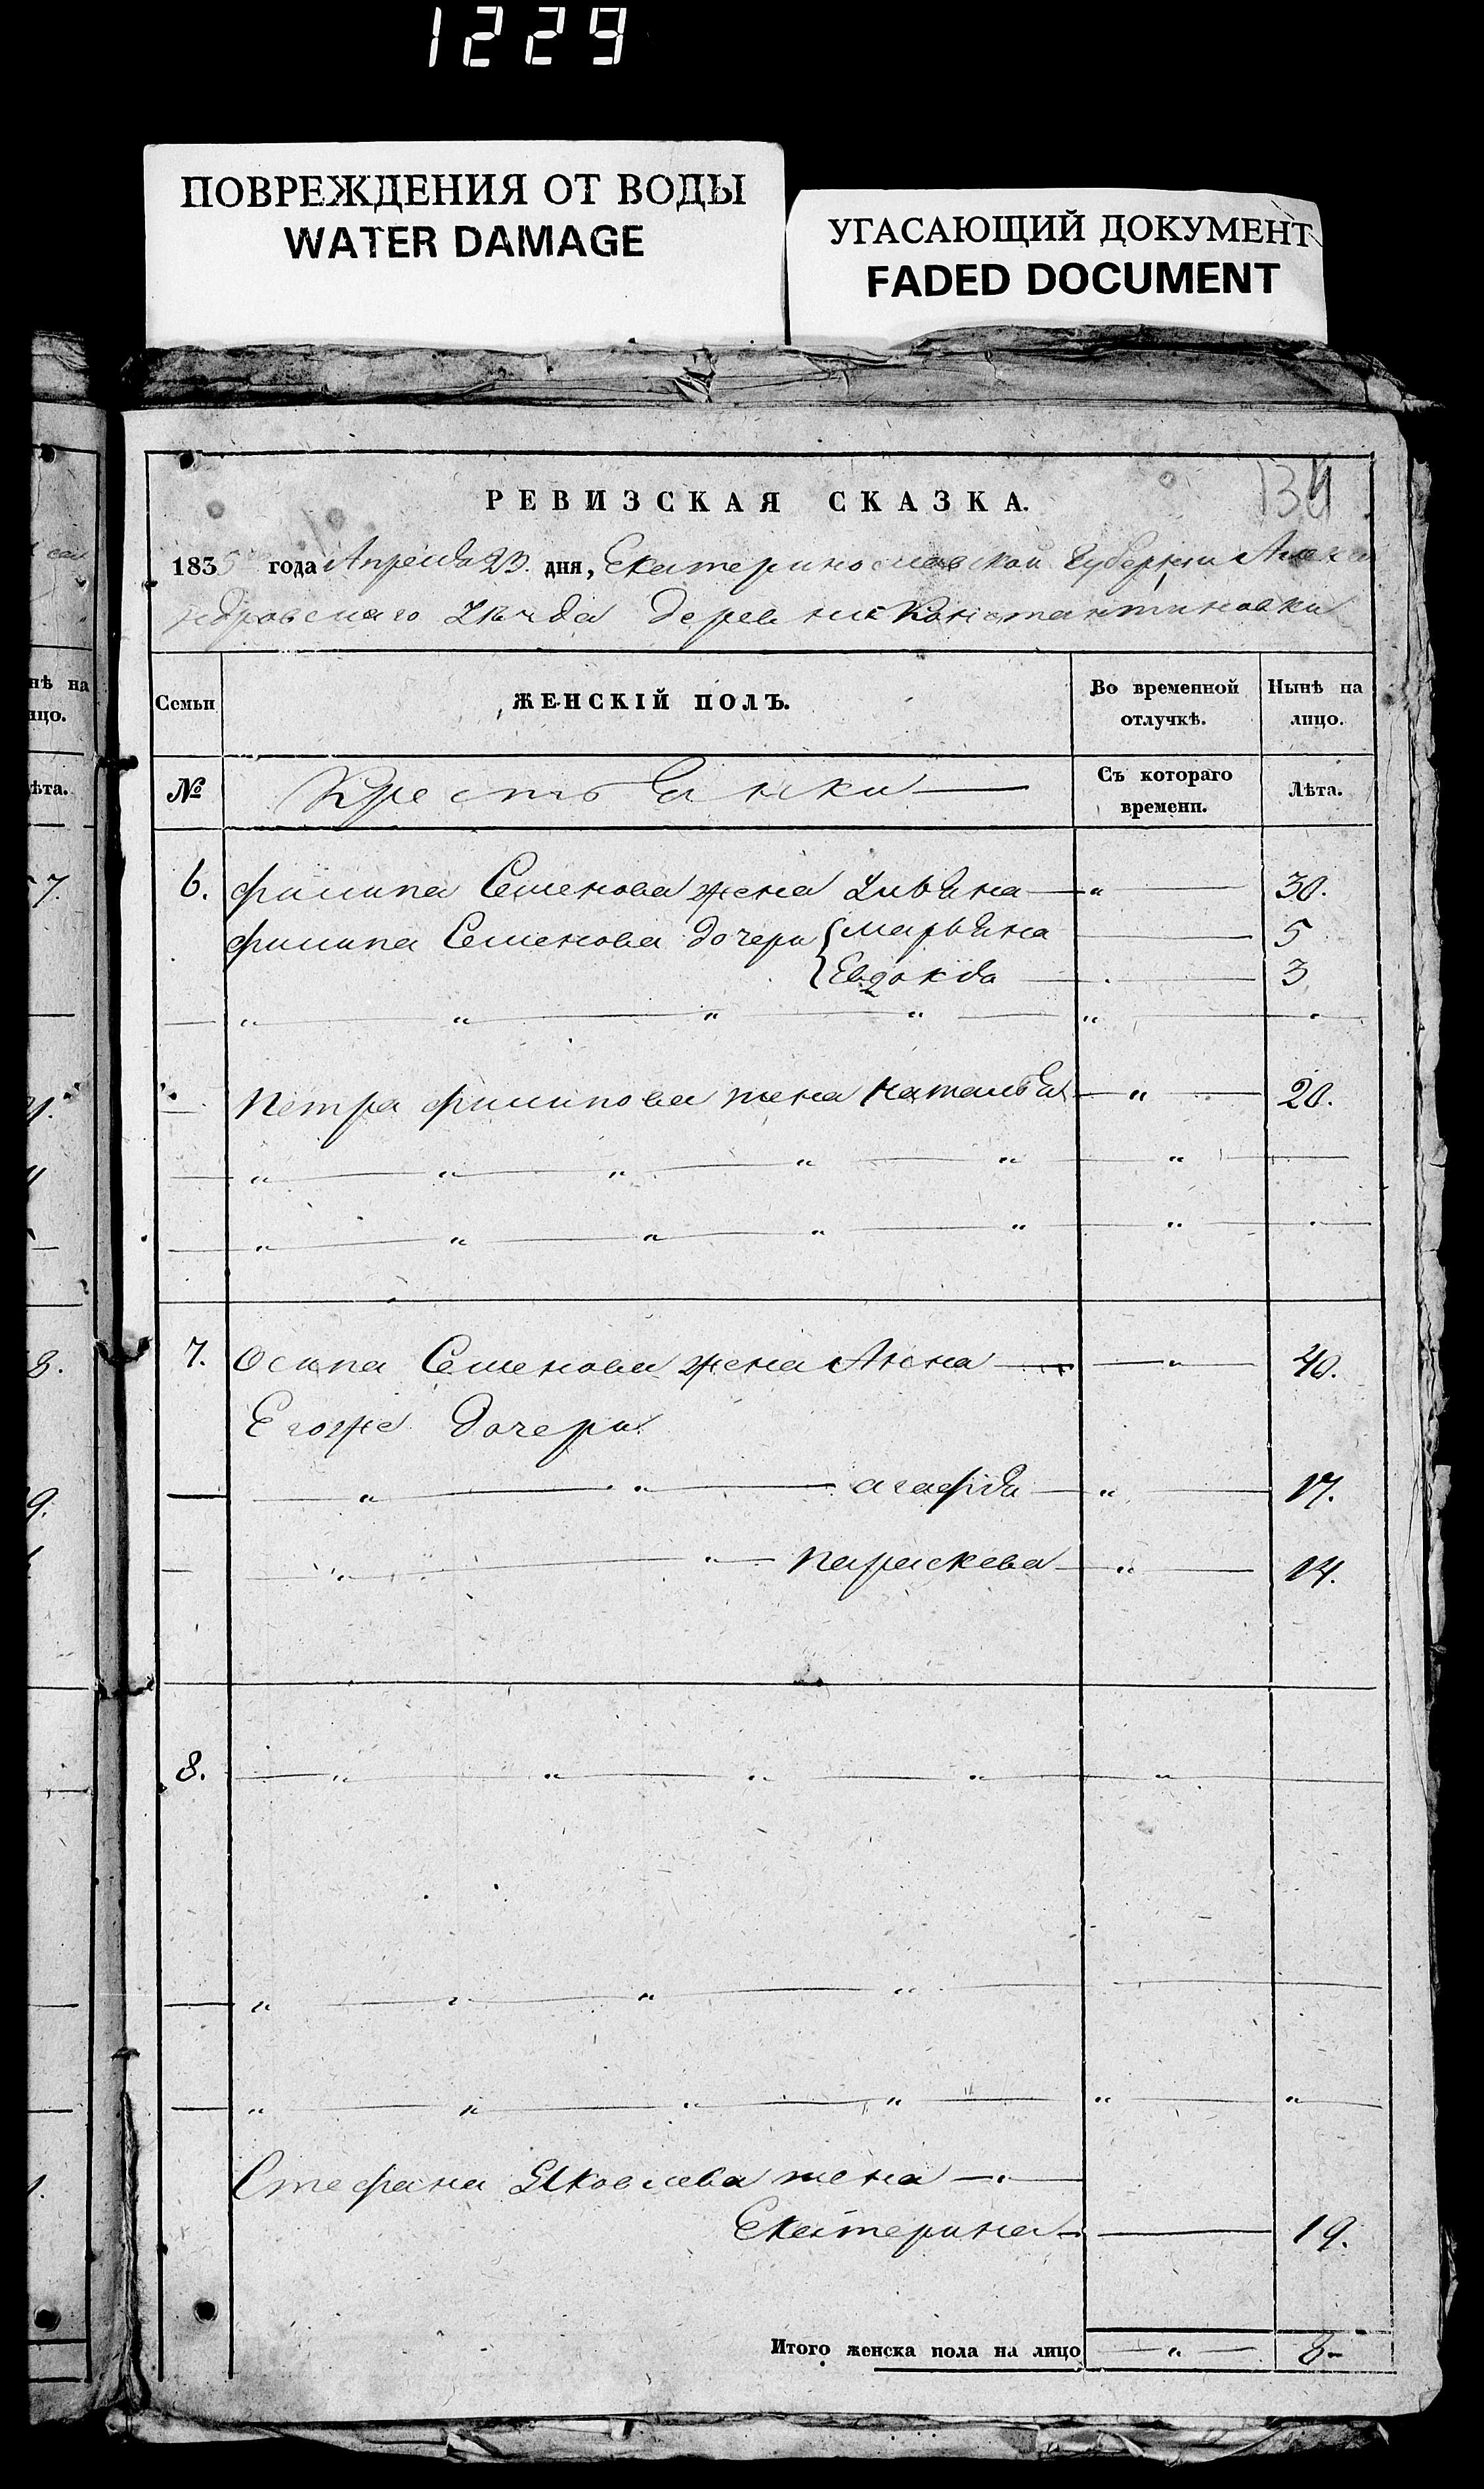 1229
ПОВРЕЖДЕНИЯ ОТ ВОДЫ
WATER DAMAGE
УГАСАЮЩИЙ ДОКУМЕНТ
FADED DOCUMENT
РЕВИЗСКАЯ СКАЗКА.
1835 года Апреля 23. дня, Екатеринославской Губернии Алексан
дровскаго Уѣзда деревни Константиновки
Семьи ЖЕНСКІЙ ПОЛЪ. Во временной отлучкѣ. Нынѣ на лицо.
№ Крестьянки Съ котораго времени. Лѣта.
6. Филипа Семенова жена Ульяна — „ — 30.
Филипа Семенова дочери { Марьяна — 5
Евдокія — 3
Петра Филипова жена Наталья — „ — 20.
7. Осипа Семенова жена Анна — „ — 40.
Егоже дочери
— „ — „ — Агафія — „ — 17.
— „ — „ — Параскева — „ — 14.
8. — „ — „ — „ — „ — „ —
Стефана Яковлева жена — „ —
Екатерина — 19.
Итого женска пола на лицо — „ — 8 –